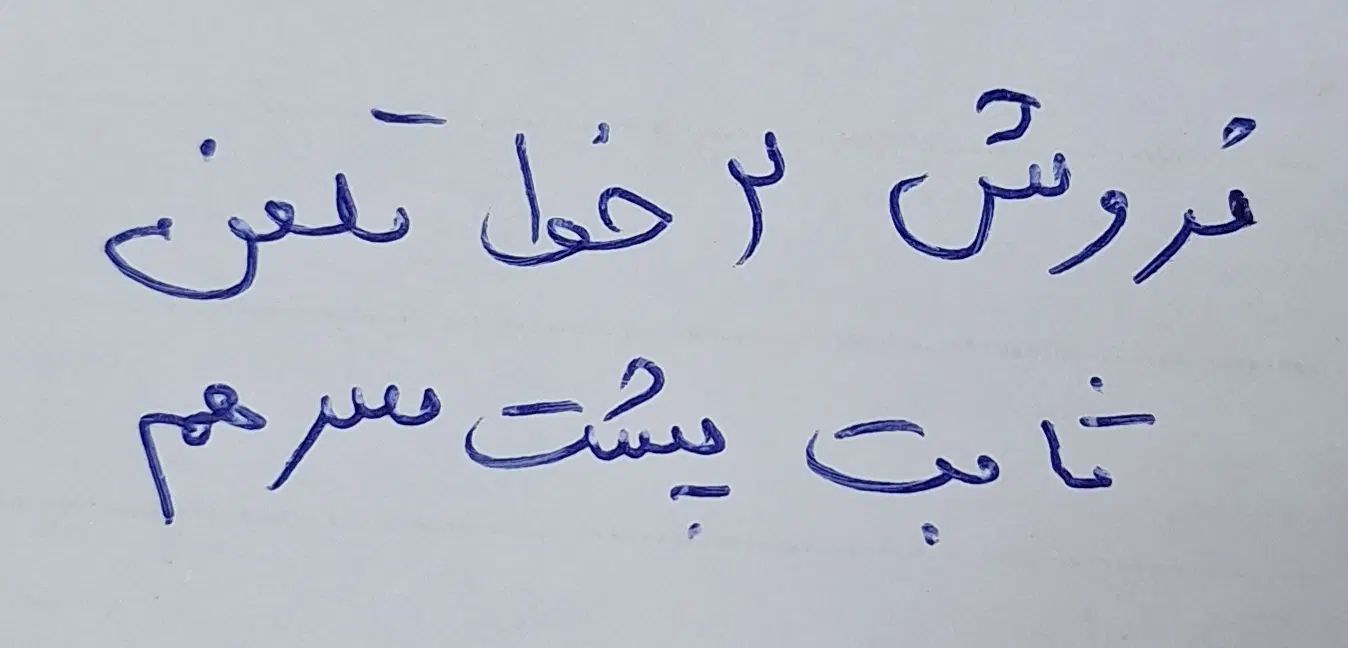 فروش ۲ خط تلفن
ثابت پشت سر هم